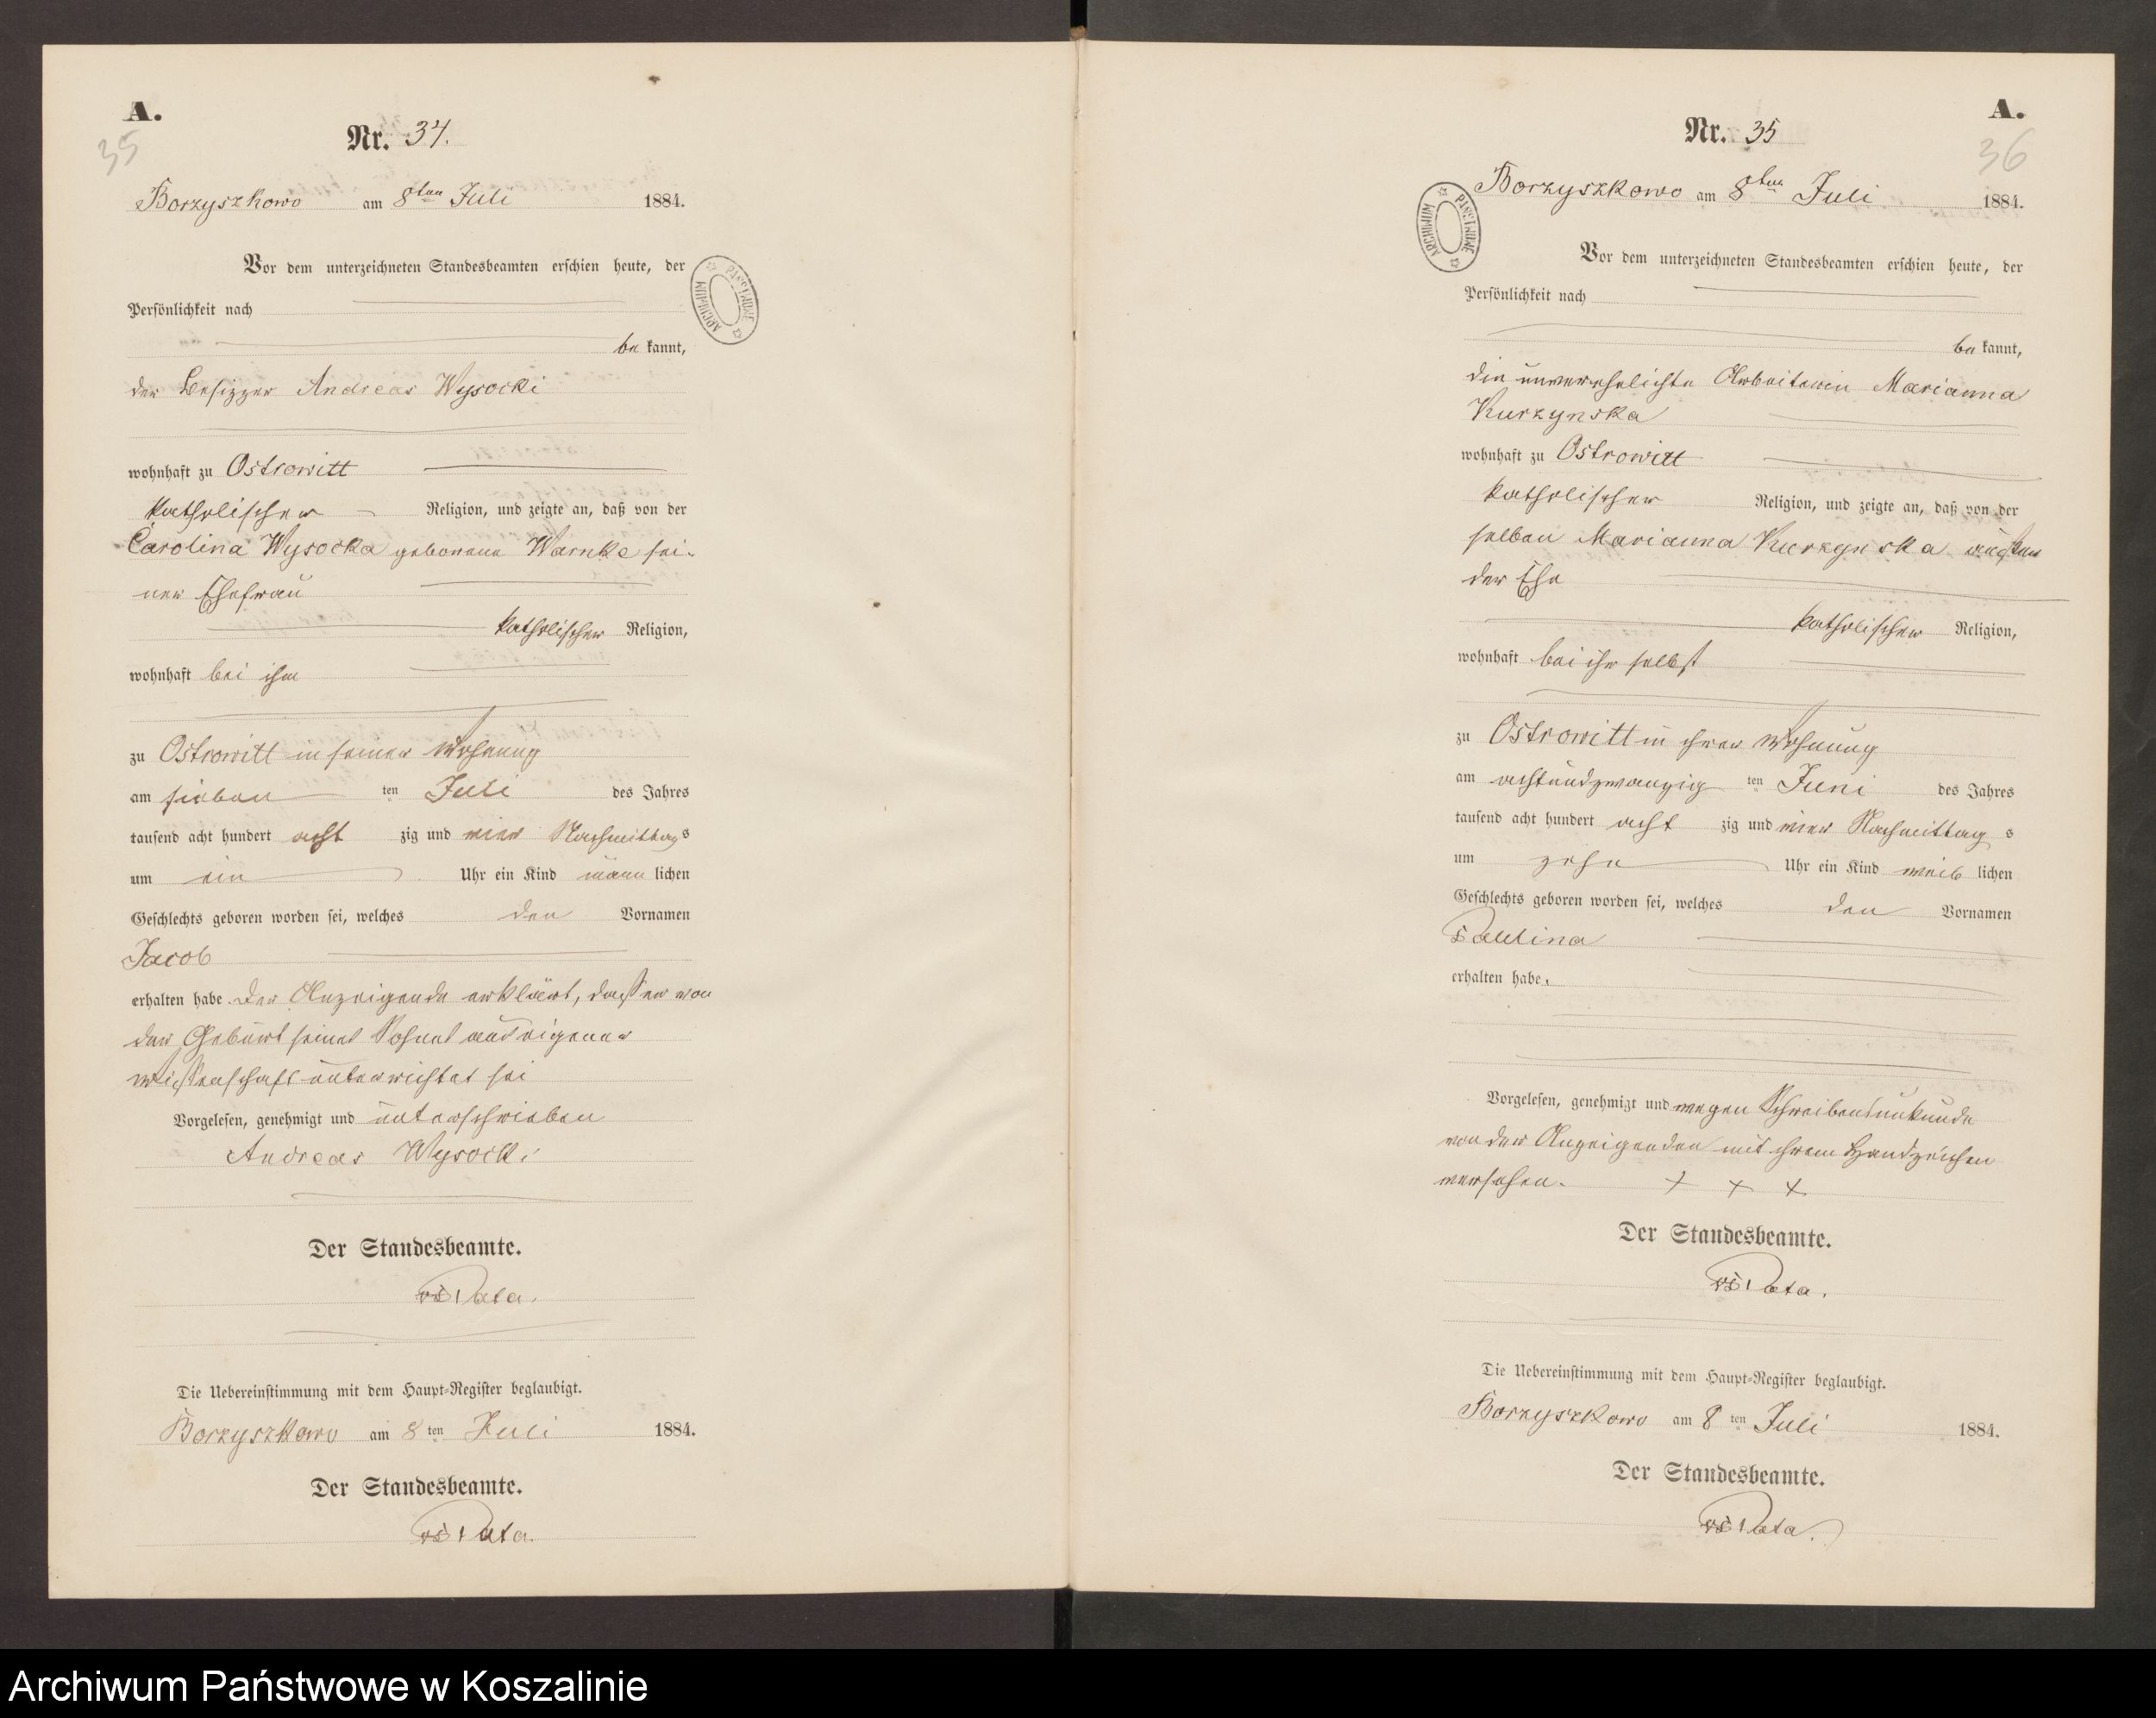 A.
35
Nr. 34.
Borzyszkowo am 8ten Juli 1884.
Vor dem unterzeichneten Standesbeamten erschien heute, der
Persönlichkeit nach
be kannt,
der Besizzer Andreas Wysocki
wohnhaft zu Ostrowitt
katholischer Religion, und zeigte an, daß von der
Carolina Wysocka geborene Warnke sei-
ner Ehefrau
katholischer Religion,
wohnhaft bei ihm
zu Ostrowitt in seiner Wohnung
am sieben ten Juli des Jahres
tausend acht hundert acht zig und vier Nachmittags
um ein Uhr ein Kind männ lichen
Geschlechts geboren worden sei, welches den Vornamen
Jacob
erhalten habe. Der Anzeigende erklärt, dass er von
der Geburt seines Sohnes aus eigener
Wissenschaft unterrichtet sei
Vorgelesen, genehmigt und unterschrieben
Andreas Wysocki
Der Standesbeamte.
Pata.
Die Uebereinstimmung mit dem Haupt-Register beglaubigt.
Borzyszkowo am 8 ten Juli 1884.
Der Standesbeamte.
Pata.
ARCHIWUM PAŃSTWOWE
A.
36
Nr. 35
Borzyszkowo am 8ten Juli 1884.
Vor dem unterzeichneten Standesbeamten erschien heute, der
Persönlichkeit nach
be kannt,
die unverehelichte Arbeiterin Marianna
Kurzynska
wohnhaft zu Ostrowitt
katholischer Religion, und zeigte an, daß von der
selben Marianna Kurzynska außer
der Ehe
katholischer Religion,
wohnhaft bei ihr selbst
zu Ostrowitt in ihrer Wohnung
am achtundzwanzig ten Juni des Jahres
tausend acht hundert acht zig und vier Nachmittag s
um zehn Uhr ein Kind weib lichen
Geschlechts geboren worden sei, welches den Vornamen
Paulina
erhalten habe.
Vorgelesen, genehmigt und wegen Schreibensunkunde
von der Anzeigenden mit ihrem Handzeichen
versehen. + + +
Der Standesbeamte.
Pata.
Die Uebereinstimmung mit dem Haupt-Register beglaubigt.
Borzyszkowo am 8 ten Juli 1884.
Der Standesbeamte.
Pata.
ARCHIWUM PAŃSTWOWE
Archiwum Państwowe w Koszalinie